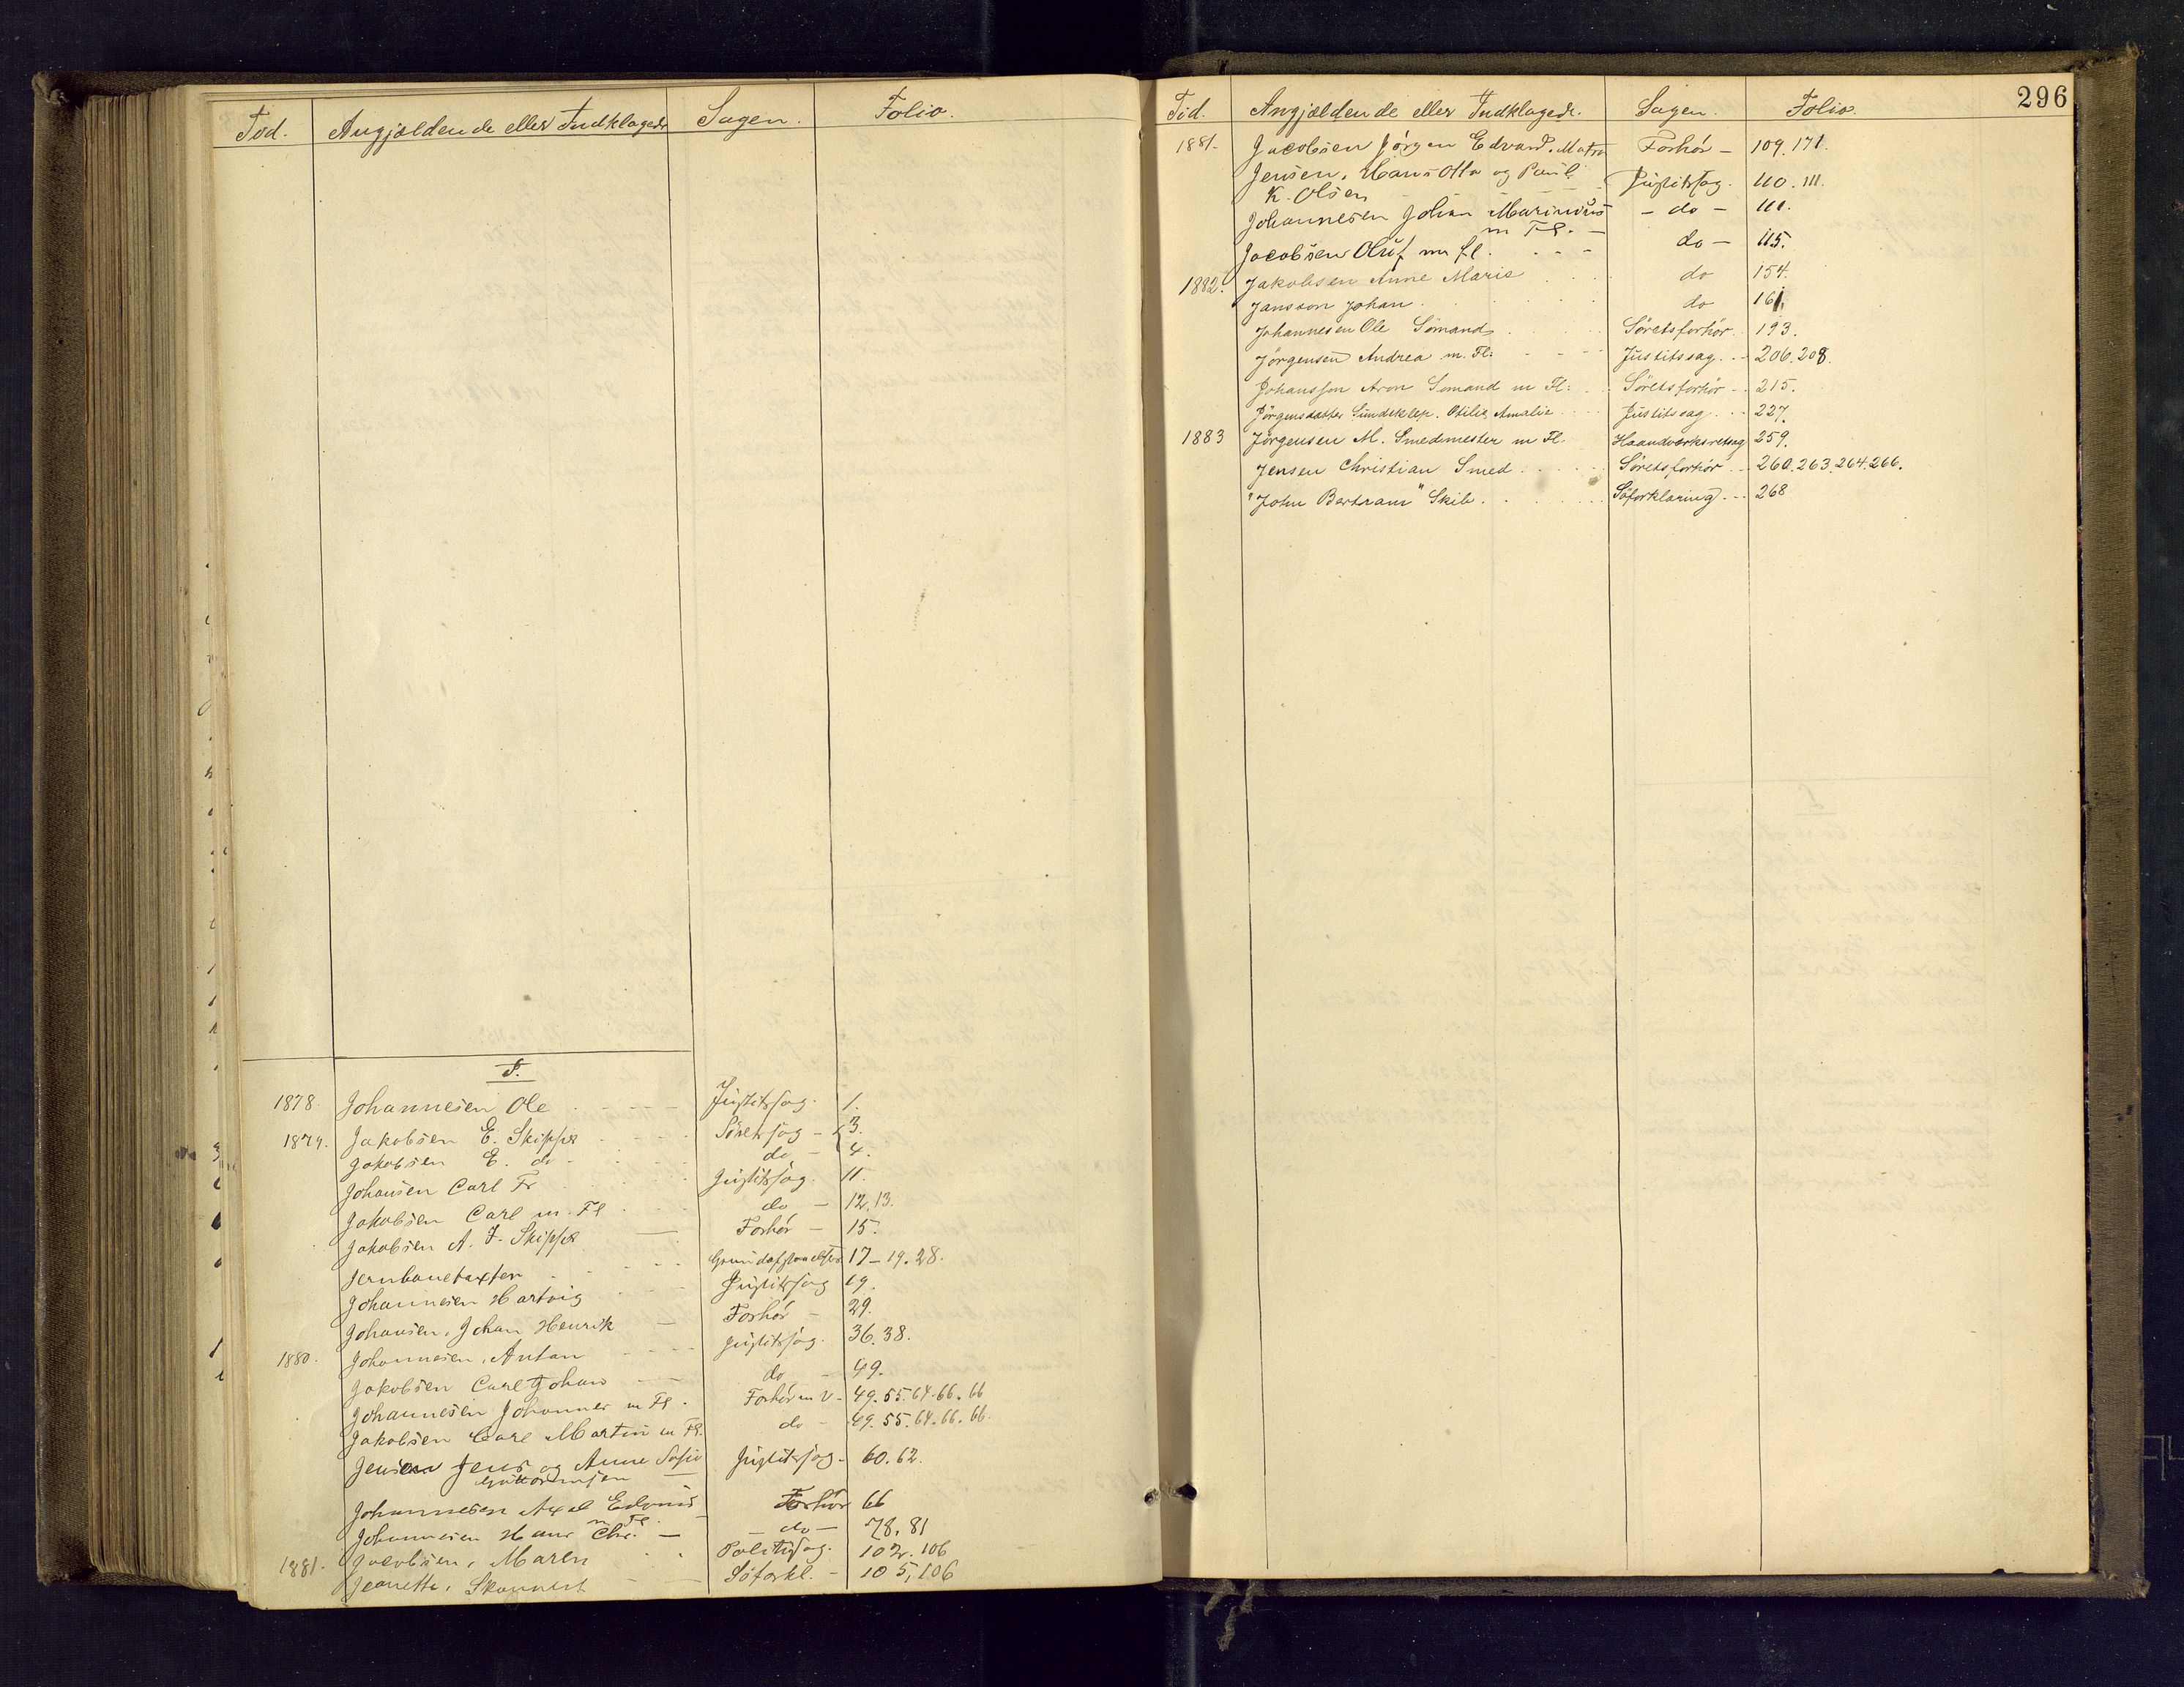 Tid. Angjældende eller Indklagede Sagen. Folio.
J.
1878. Johannesen Ole Justitssag. 1.
1879. Jakobsen E. Skipper Søretssag - 3.
Jakobsen E. do - do - 4.
Johansen Carl Fr Justitssag. 11.
Jakobsen Carl m. Fl do - 12.13.
Jakobsen A. J. Skipper Forhør - 15.
Jernbanetaxter 17-19.28.
Johannesen Hartvig Justitssag 19.
Johansen, Johan Henrik - Forhør - 29.
1880. Johannesen, Anton Justitssag. 36.38.
Jakobsen Carl Johan do - 49.
Johannesen Johannes m Fl. Forhør m V - 49.55.64.66.66
Jakobsen Carl Martin m Fl. do - 49.55.64.66.66.
Jensen Jens og Anne Sofie Justitssag - 60.62.
Guttormsen
Johannesen Axel Edvind Forhør 66
m Fl.
Johannesen Hans Chr. - - do - 78.81
1881. Jacobsen, Maren Politisag. 102.106
Jeanette, Skonnert Søforkl. - 105,106
296
Tid. Angjældende eller Indklagede. Sagen. Folio.
1881. Jacobsen Jörgen Edvard. Matro Forhør - 109.171.
Jensen, Hans Otto og Paul Justitssag. 110.111.
K. Olsen
Johannesen Johan Marinius - do - 111.
m Fl. -
Jacobsen Oluf m fl. do - 115.
1882. Jakobsen Anne Marie do 154.
Jansson Johan do 161.
Johannesen Ole Sömand Söretsforhör. 193.
Jörgensen Andrea m. Fl: Justitssag. 206.208.
Johansson Aron Sömand m Fl: Söretsforhör - 215.
Jörgensdatter Sundeklep. Otilie Amalie Justitssag. 227.
1883 Jörgensen M. Smedmester m Fl. Haandværksretsag 259.
Jensen Christian Smed. Söretsforhör - 260.263.264.266.
"John Bertram" Skib. Söforklaring. 268